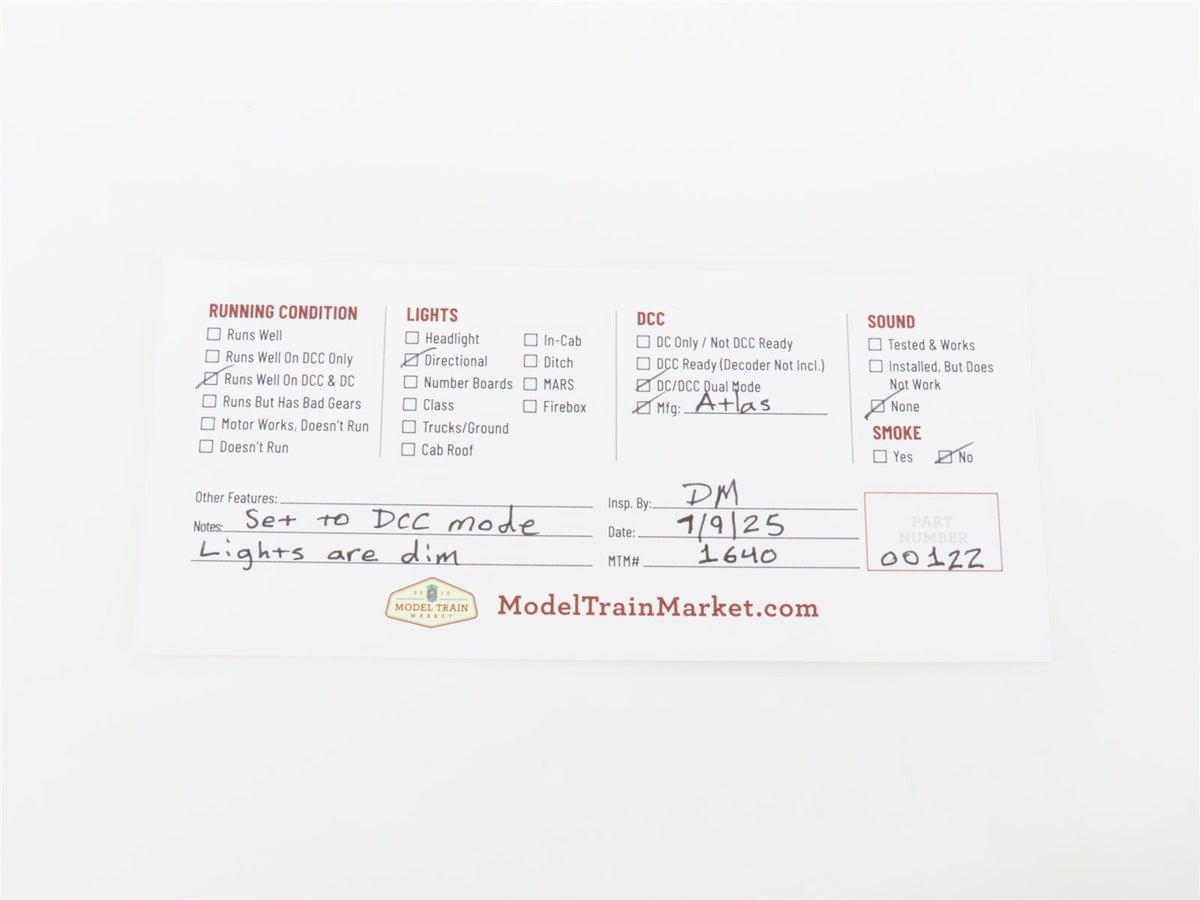 RUNNING CONDITION
Runs Well
Runs Well On DCC Only
Runs Well On DCC & DC
Runs But Has Bad Gears
Motor Works, Doesn't Run
Doesn't Run
LIGHTS
Headlight
Directional
Number Boards
Class
Trucks/Ground
Cab Roof
In-Cab
Ditch
MARS
Firebox
DCC
DC Only / Not DCC Ready
DCC Ready (Decoder Not Incl.)
DC/DCC Dual Mode
Mfg: Atlas
SOUND
Tested & Works
Installed, But Does
Not Work
None
SMOKE
Yes No
Other Features:
Notes: Set to DCC mode
Lights are dim
Insp. By: DM
Date: 7/9/25
MTM# 1640
PART
NUMBER
00122
MODEL TRAIN
MARKET
ModelTrainMarket.com